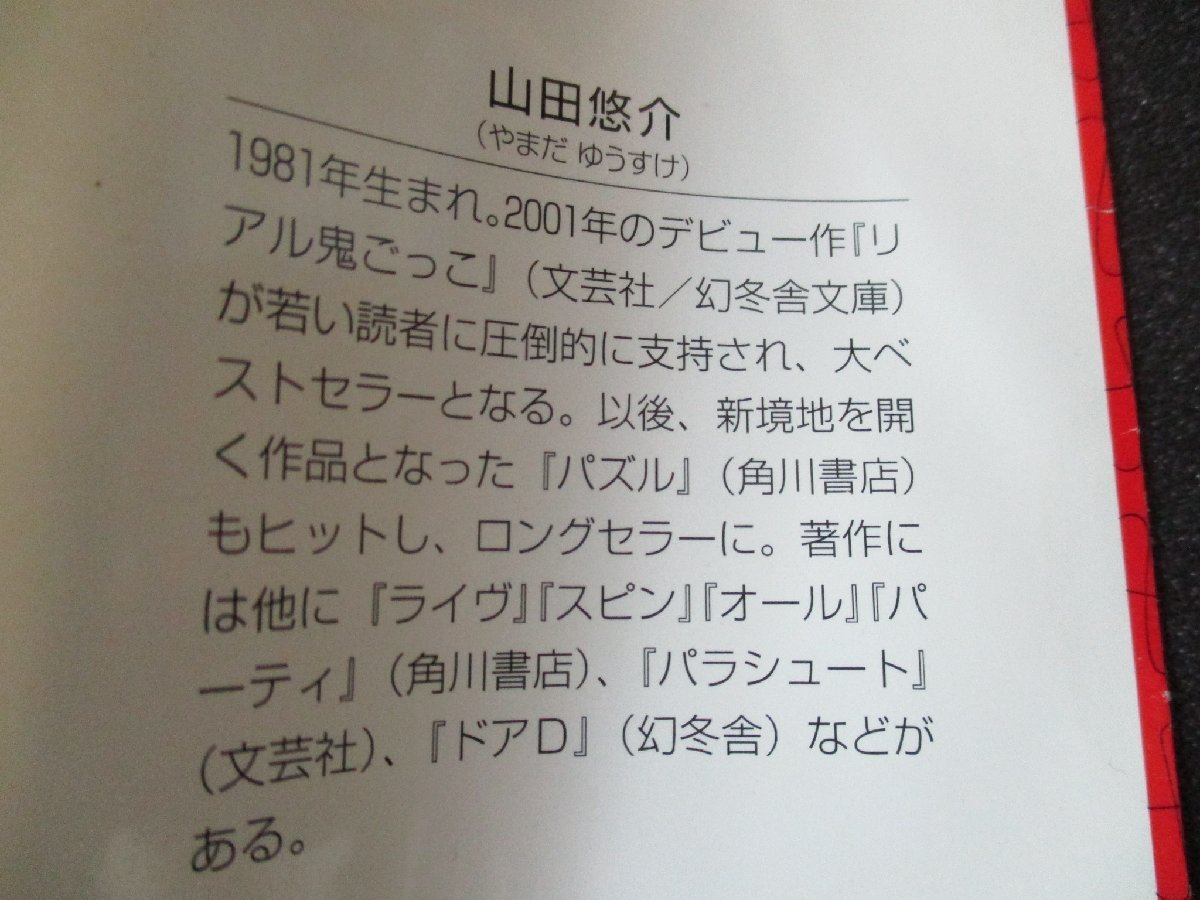 山田悠介
(やまだ ゆうすけ)
1981年生まれ。2001年のデビュー作『リ
アル鬼ごっこ』(文芸社／幻冬舎文庫)
が若い読者に圧倒的に支持され、大ベ
ストセラーとなる。以後、新境地を開
く作品となった『パズル』(角川書店)
もヒットし、ロングセラーに。著作に
は他に『ライヴ』『スピン』『オール』『パ
ーティ』(角川書店)、『パラシュート』
(文芸社)、『ドアD』(幻冬舎)などが
ある。